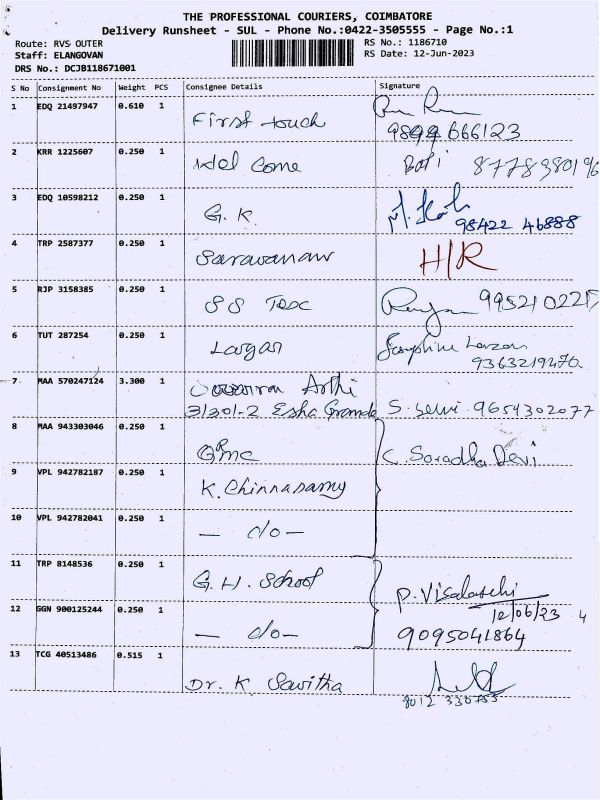 THE PROFESSIONAL COURIERS, COIMBATORE
Delivery Runsheet - SUL - Phone No.:0422-3505555 - Page No.:1
Route: RVS OUTER RS No.: 1186710
Staff: ELANGOVAN RS Date: 12-Jun-2023
DRS No.: DCJB118671001
S No Consignment No Weight PCS Consignee Details Signature
1 EDQ 21497947 0.610 1 First touch
666123
2 KRR 1225607 0.250 1 Wel Come
3 EDQ 10598212 0.250 1 G. K.
98422 46888
4 TRP 2587377 0.250 1 Saravanan H/R
5 RJP 3158385 0.250 1 SS Tex
6 TUT 287254 0.250 1 Josephine
7 MAA 570247124 3.300 1 Arthi
3/301-2 Esha Grande S. Selvi 9659302077
8 MAA 943303046 0.250 1 C. Saradha Devi
9 VPL 942782187 0.250 1 K. Chinnasamy
10 VPL 942782041 0.250 1 — do —
11 TRP 8148536 0.250 1 G. H. School P. Visalatchi
12/06/23
12 GGN 900125244 0.250 1 — do — 9095041864
13 TCG 40513486 0.515 1 Dr. K. Savitha